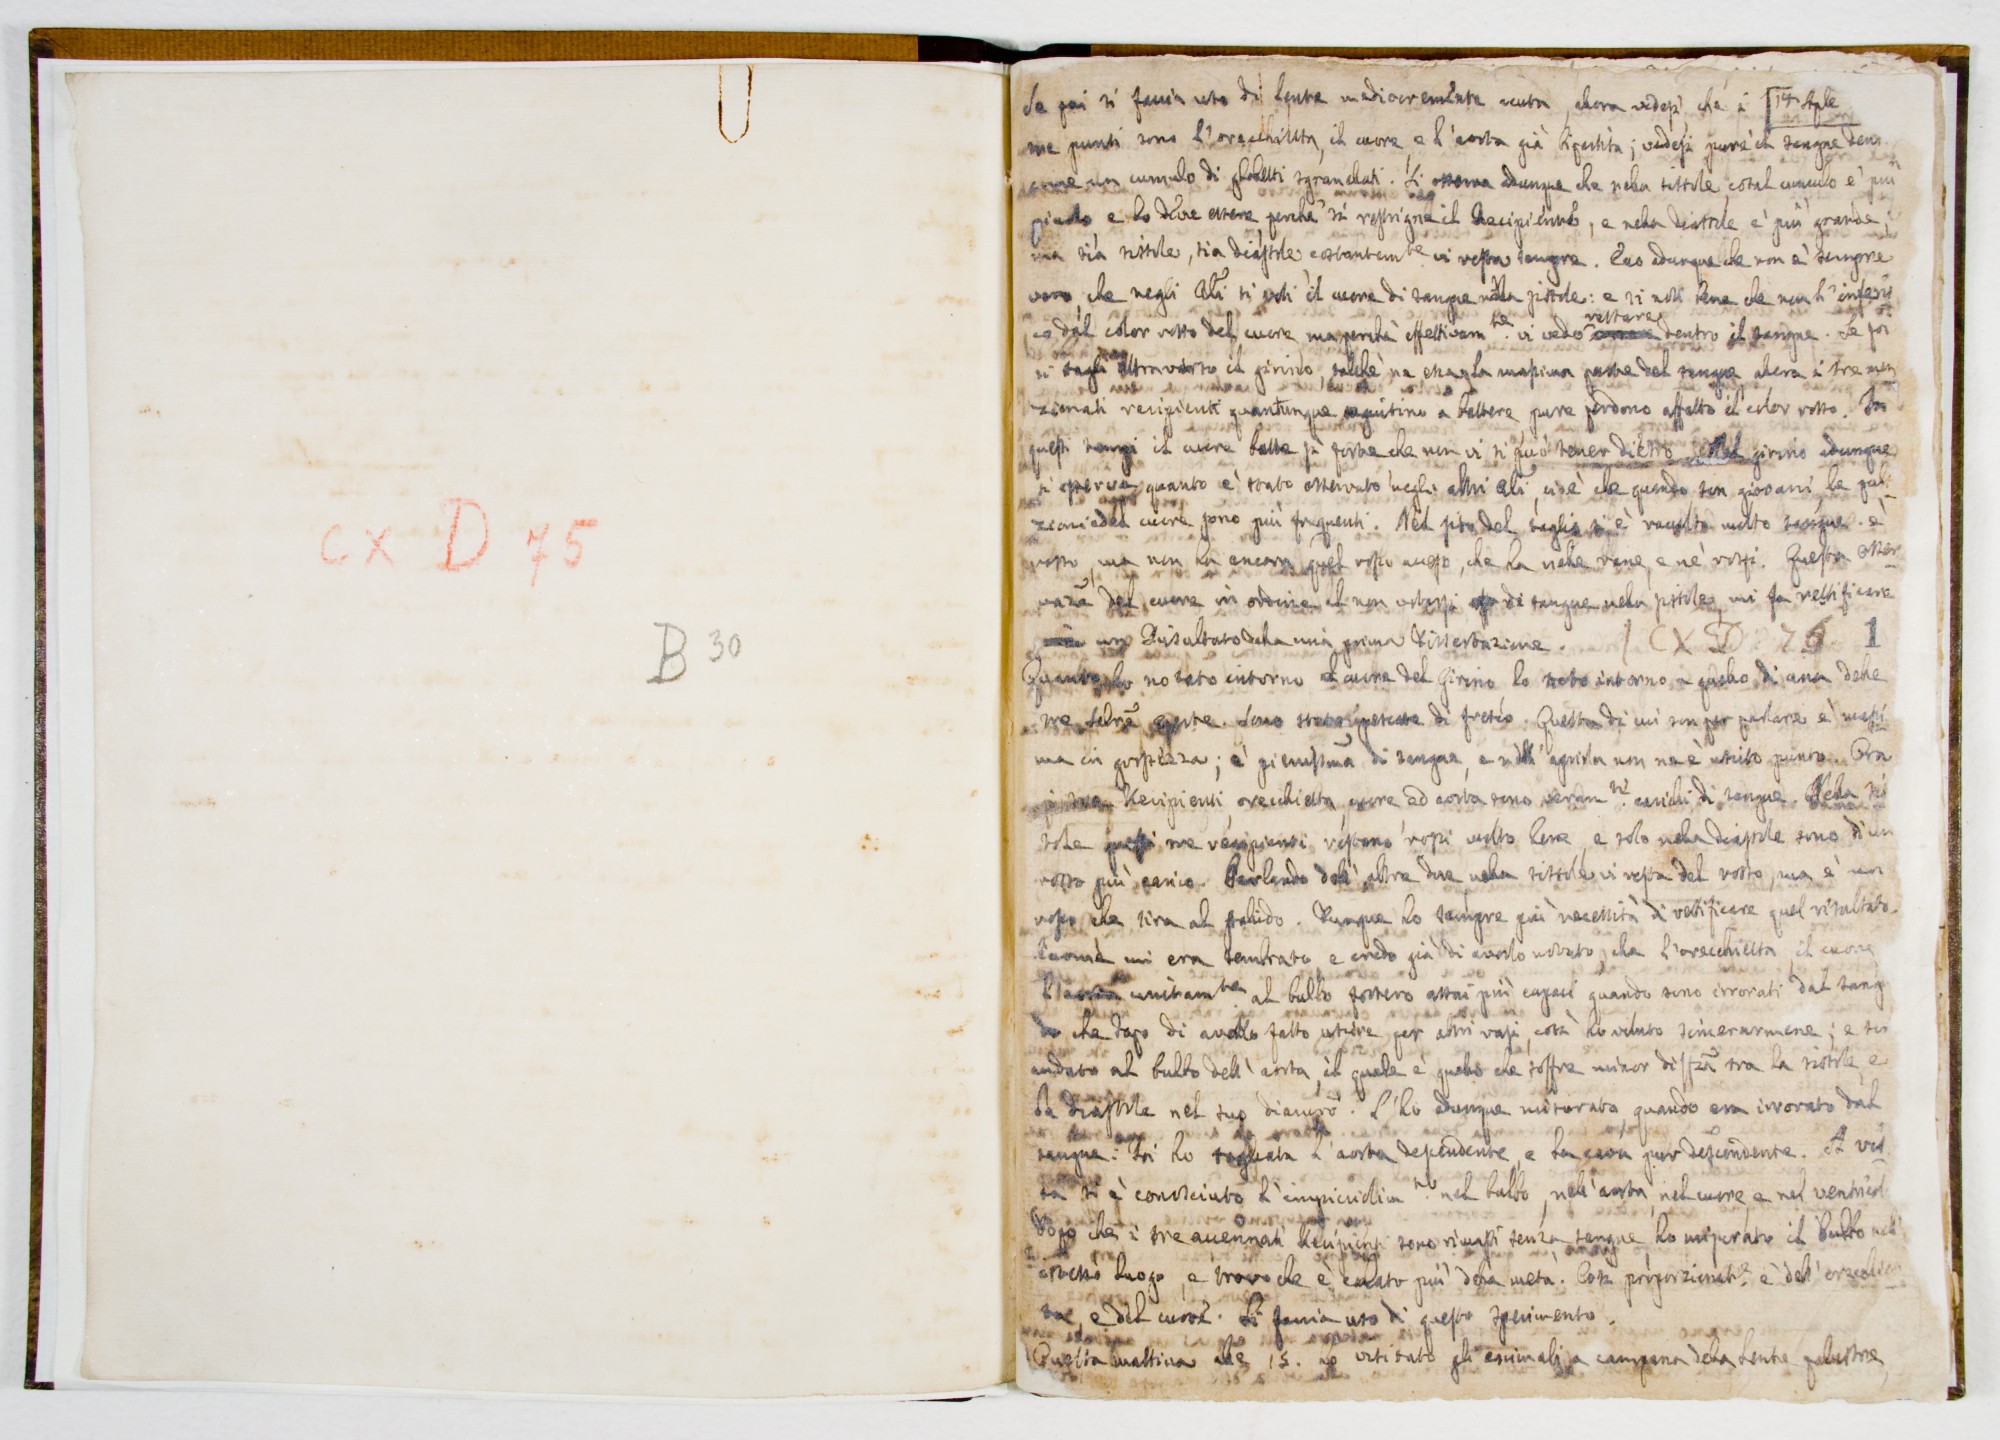 cx D 75
B 30
Se poi si faccia uso di lente mediocremente acuta, allora vedesi che i
14. Aple
tre punti sono l'orecchietta, il cuore, e l'aorta già bipartita; vedesi pure il sangue
come un cumulo di globetti sgranellati. Si osserva adunque che nella sistole cotal cumulo è più
picolo, e lo deve essere perchè si restrigne il Recipiente, e nella diastole è più grande;
ma sia sistole, sia diastole costantemte vi resta sangue. Ecco adunque che non è sempre
vero, che negli Ali si voti il cuore di sangue nella sistole: e si noti bene che non l'inferis
co dal color rosso del cuore ma perchè effettivamte. vi vedo restare dentro il sangue. Se poi
si tagli attraverso il girino, talchè ne esca la massima parte del sangue allora i tre men
zionati recipienti quantunque seguitino a battere, pure perdono affatto il color rosso. In
questi tempi il cuore batte sì forte che non vi si può tener dietro. Nel girino adunque
si osserva quanto è stato osservato negli altri Ali, cioè che quando son giovani, le pul
zioni del cuore sono più frequenti. Nel sito del taglio si è raccolto molto sangue. è
rosso, ma non ha ancora quel rosso acceso, che ha nelle rane, e ne' rospi. Questa osser
vazne del cuore in ordine al non votarsi di sangue nella sistole, mi fa rettificare
un Risultato della mia prima Dissertazione.
CX D 75 1
Quanto ho notato intorno al cuore del Girino lo noto intorno a quello di una delle
tre Salre aperte. Sono state pescate di fresco. Questa di cui son per parlare è massi
ma in grossezza; è pienissma di sangue, e nell'aprirla non ne è uscito punto. Ora
i tre Recipienti, orecchietta, cuore ed aorta sono veramte. carichi di sangue. Nella sis
tole questi tre recipienti restano rossi molto bene, e solo nella diastole sono di un
rosso più carico. Parlando dell'altre due, nella sistole vi resta del rosso, ma è un
rosso che tira al pallido. Dunque ho sempre più necessità di rettificare quel risultato.
mi era sembrato, e credo già di averlo notato, che l'orecchietta il cuore
l'aorta unitamte al bulbo fossero assai più capaci quando sono irrorati dal sang
che dopo di averlo fatto uscire per altri vasi, così ho voluto sincerarmene; e son
andato al bulbo dell'aorta, il quale è quello che soffre minor diffza tra la sistole, e
la diastole nel suo diametro. L'ho adunque misurato quando era irrorato dal
sangue: Poi ho tagliata l'aorta discendente, e la cava pur discendente. A vis
ta si è conosciuto l'impiciolimto. nel bulbo, nell'aorta, nel cuore, e nel ventricol
Dopo che i tre accennati Recipienti sono rimasti senza sangue, ho misurato il Bulbo nell'
istesso luogo, e trovo che è calato più della metà. Così proporzionate. è dell'orecchiet
ta, e del cuore. Si faccia uso di questo sperimento.
Questa mattina alle 15. ho visitato gli animali a campana della lente palustre,